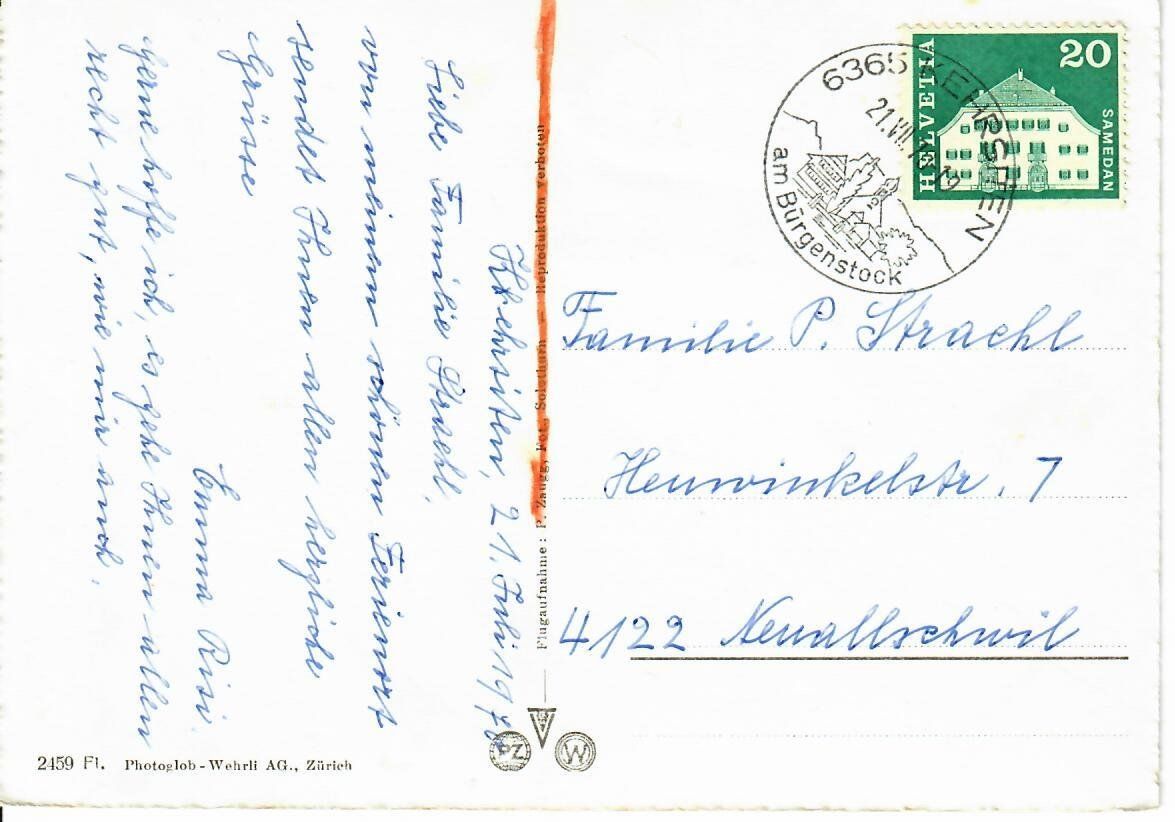 Kehrsiten, 21. Juli 1970
Liebe Familie Strachl,
von meinem schönen Ferienort
sendet Ihnen allen herzliche
Grüsse
Emma Risi.
Gerne hoffe ich, es gehe Ihnen allen
recht gut, wie mir auch.
HELVETIA
20
SAMEDAN
6365 KEHRSITEN
21.VII.
am Bürgenstock
Familie P. Strachl
Heuwinkelstr. 7
4122 Neuallschwil
Flugaufnahme: P. Zaugg, Fot., Solothurn — Reproduktion verboten
PZ
W
2459 Fl. Photoglob-Wehrli AG., Zürich